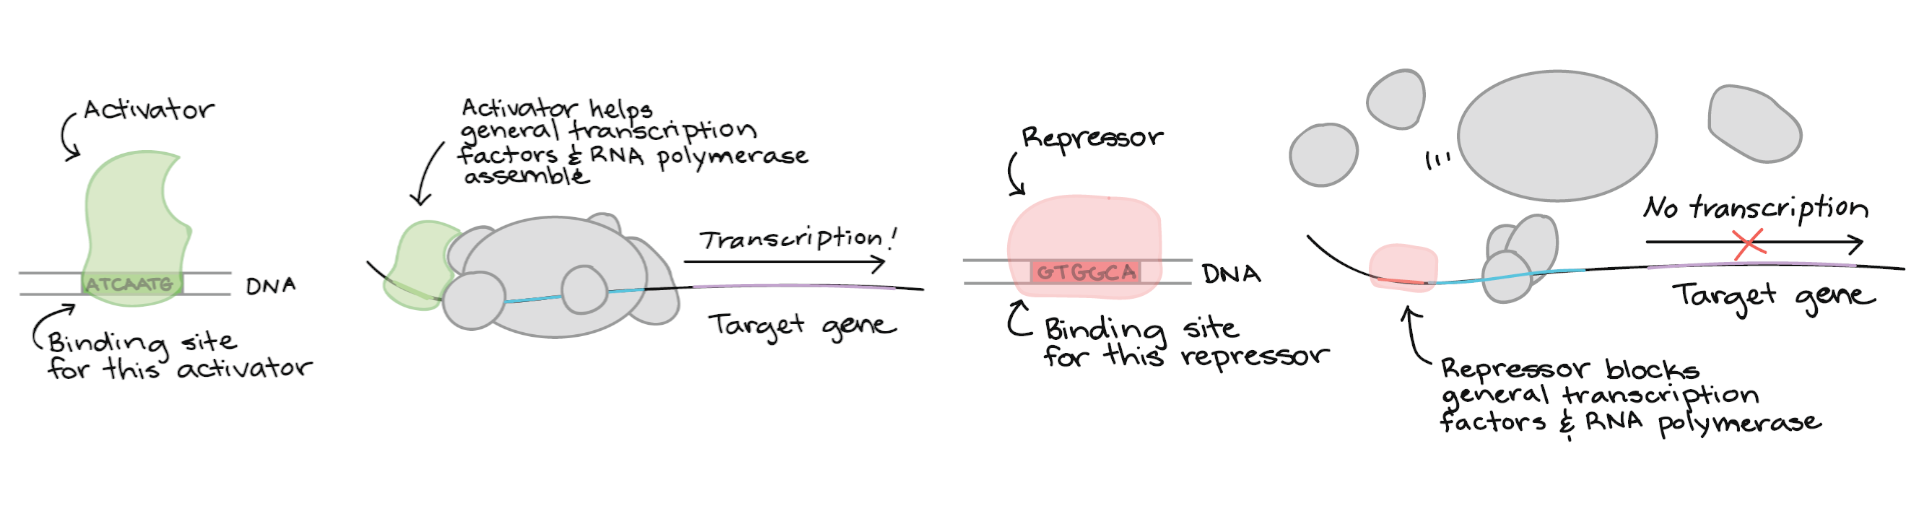 Activator
ATCAATG
DNA
Binding site
for this activator
Activator helps
general transcription
factors & RNA polymerase
assemble
Transcription!
Target gene
Repressor
GTGGCA
DNA
Binding site
for this repressor
No transcription
Target gene
Repressor blocks
general transcription
factors & RNA polymerase